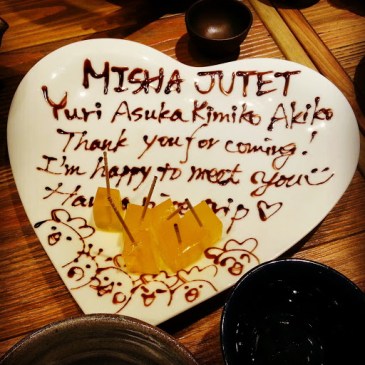 MISHA JUTET
Yuri Asuka Kimiko Akiko
Thank you for coming!
I'm happy to meet you
Have trip